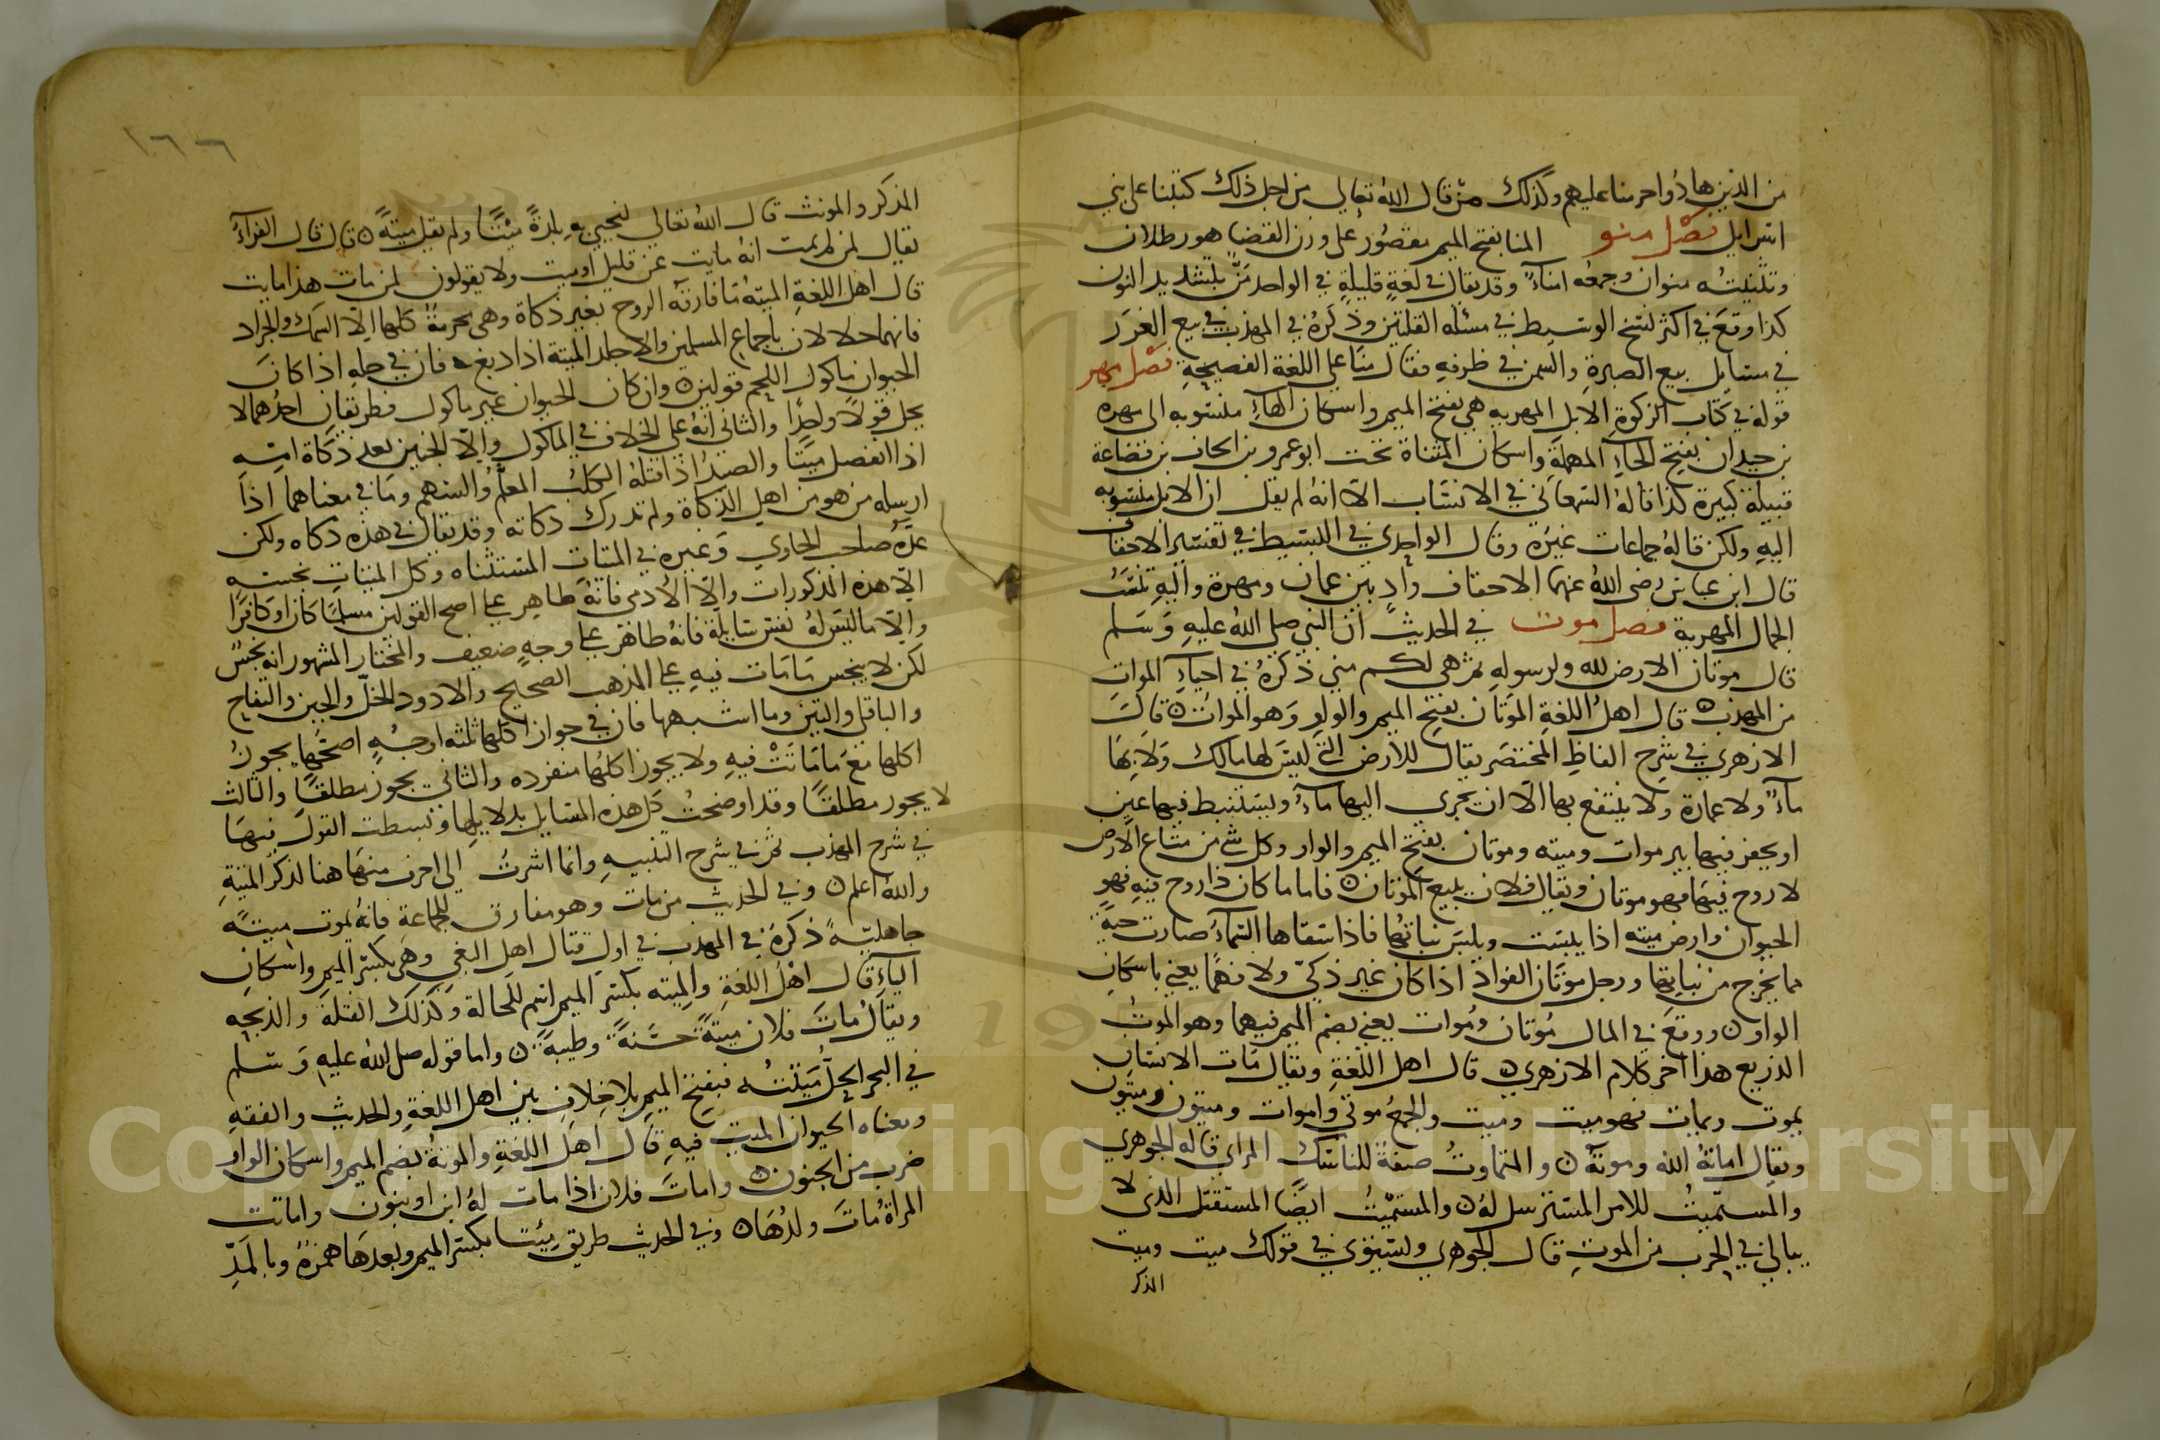 من الذين هادوا حرمنا عليهم وكذلك من قال الله تعالى من اجل ذلك كتبنا على بني
اسرايل فصل منو المنا بفتح الميم مقصور على وزن القضا هو رطلان
وتثنيته منوان وجمعه امناء وقد يقال في لغة قليلة في الواحد من بتشديد النون
كذا وقع في اكثر نسخ الوسيط في مسئلة القلتين وذكره في المهذب في بيع الغرر
في مسايل بيع الصبرة والسمن في ظرفه فقال منا على اللغة الفصيحة فصل مهر
قوله في كتاب الزكوة الابل المهرية هي بفتح الميم واسكان الهاء منسوبة الى مهرة
بن حيدان بفتح الحاء المهملة واسكان المثناة تحت ابو عمرو بن الحاف بن قضاعة
قبيلة كبيرة كذا قاله السمعاني في الانساب الا انه لم يقل ان الابل منسوبة
اليه ولكن قاله جماعات غيره وقال الواحدي في البسيط في تفسير الاحقاف
قال ابن عباس رضي الله عنهما الاحقاف واد بين عمان ومهرة واليه تنسب
الجمال المهرية فصل موت في الحديث ان النبي صلى الله عليه وسلم
قال موتان الارض لله ولرسوله ثم هي لكم مني ذكره في احياء الموات
من المهذب قال اهل اللغة الموتان بفتح الميم والواو وهو الموات قال
الازهري في شرح الفاظ المختصر يقال للارض التي ليس لها مالك ولا بها
ماء ولا عمارة ولا ينتفع بها الا ان يجري اليها ماء ويستنبط فيها عين
او يحفر فيها بير موات وميته وموتان بفتح الميم والواو وكل شي من متاع الارض
لا روح فيها فهو موتان ويقال فلان يبيع الموتان فاما ما كان ذا روح فيه فهو
الحيوان وارض ميته اذا يبست ويبس نباتها فاذا سقاها السماء صارت حية
بما يخرج من نباتها ورجل موتان الفواد اذا كان غير ذكي ولا فهم يعني باسكان
الواو ووقع في المال موتان وموات يعني بضم الميم فيهما وهو الموت
الذريع هذا اخر كلام الازهري قال اهل اللغة ويقال مات الانسان
يموت ويمات فهو ميت وميت والجمع موتى واموات وميتون وميتون
ويقال اماته الله وموته والمتماوت صفة للناسك المراي قاله الجوهري
والمستميت للامر المسترسل له والمستميت ايضا المستقتل الذي لا
يبالي في الحرب من الموت قال الجوهري ويستوي في قولك ميت وميت
المذكر
١٦٦
المذكر والمونث قال الله تعالى لنحيي به بلدة ميتا ولم يقل ميتة قال قال الفراء
يقال لمن لم يمت انه مايت عن قليل او ميت ولا يقولون لمن مات هذا مايت
قال اهل اللغة الميتة ما فارقته الروح بغير ذكاة وهي محرمة كلها الا السمك والجراد
فانهما حلالان باجماع المسلمين والا جلد الميتة اذا دبغ فان في حله اذا كان
الحيوان ماكول اللحم قولين وان كان الحيوان غير ماكول فطريقان احدهما لا
يحل قولا واحدا والثاني انه على الخلاف في الماكول والا الجنين بعد ذكاة امه
اذا انفصل ميتا والصيد اذا قتله الكلب المعلم والسهم وما في معناهما اذا
ارسله من هو من اهل الذكاة ولم تدرك ذكاته وقد يقال في هذه ذكاه ولكن
عده صاحب الحاوي وغيره في الميتات المستثناه وكل الميتات نجسة
الا هذه المذكورات والا الادمي فانه طاهر على اصح القولين مسلما كان او كافرا
والا ما ليس له نفس سايلة فانه طاهر على وجه ضعيف والمختار المشهور انه نجس
لكن لا ينجس ما مات فيه على المذهب الصحيح والا دود الخل والجبن والتفاح
والباقلى والتين وما اشبهها فان في جواز اكلها ثلثة اوجه اصحها يجوز
اكلها مع ما ماتت فيه ولا يجوز اكلها منفرده والثاني يجوز مطلقا والثالث
لا يجوز مطلقا وقد اوضحت كل هذه المسايل بدلايلها وبسطت القول فيها
في شرح المهذب ثم في شرح التنبيه وانما اشرت الى احرف منها هنا لذكر الميتة
والله اعلم وفي الحديث من مات وهو مفارق للجماعة فانه يموت ميتة
جاهلية ذكره في المهذب في اول قتال اهل البغي وهي بكسر الميم واسكان
الياء قال اهل اللغة والميته بكسر الميم اسم للحالة وكذلك القتلة والذبحه
ويقال مات فلان ميتة حسنة وطيبة واما قوله صلى الله عليه وسلم
في البحر الحل ميتته فبفتح الميم بلا خلاف بين اهل اللغة والحديث والفقه
ومعناه الحيوان الميت فيه قال اهل اللغة والموتة بضم الميم واسكان الواو
ضرب من الجنون وامات فلان اذا مات له ابن او بنون واماتت
المراة مات ولدها وفي الحديث طريق ميتا بكسر الميم وبعدها همزة وبالمد